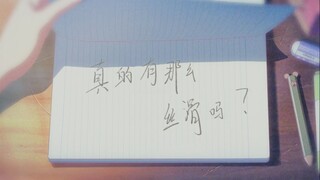 真的有那么
丝滑吗？